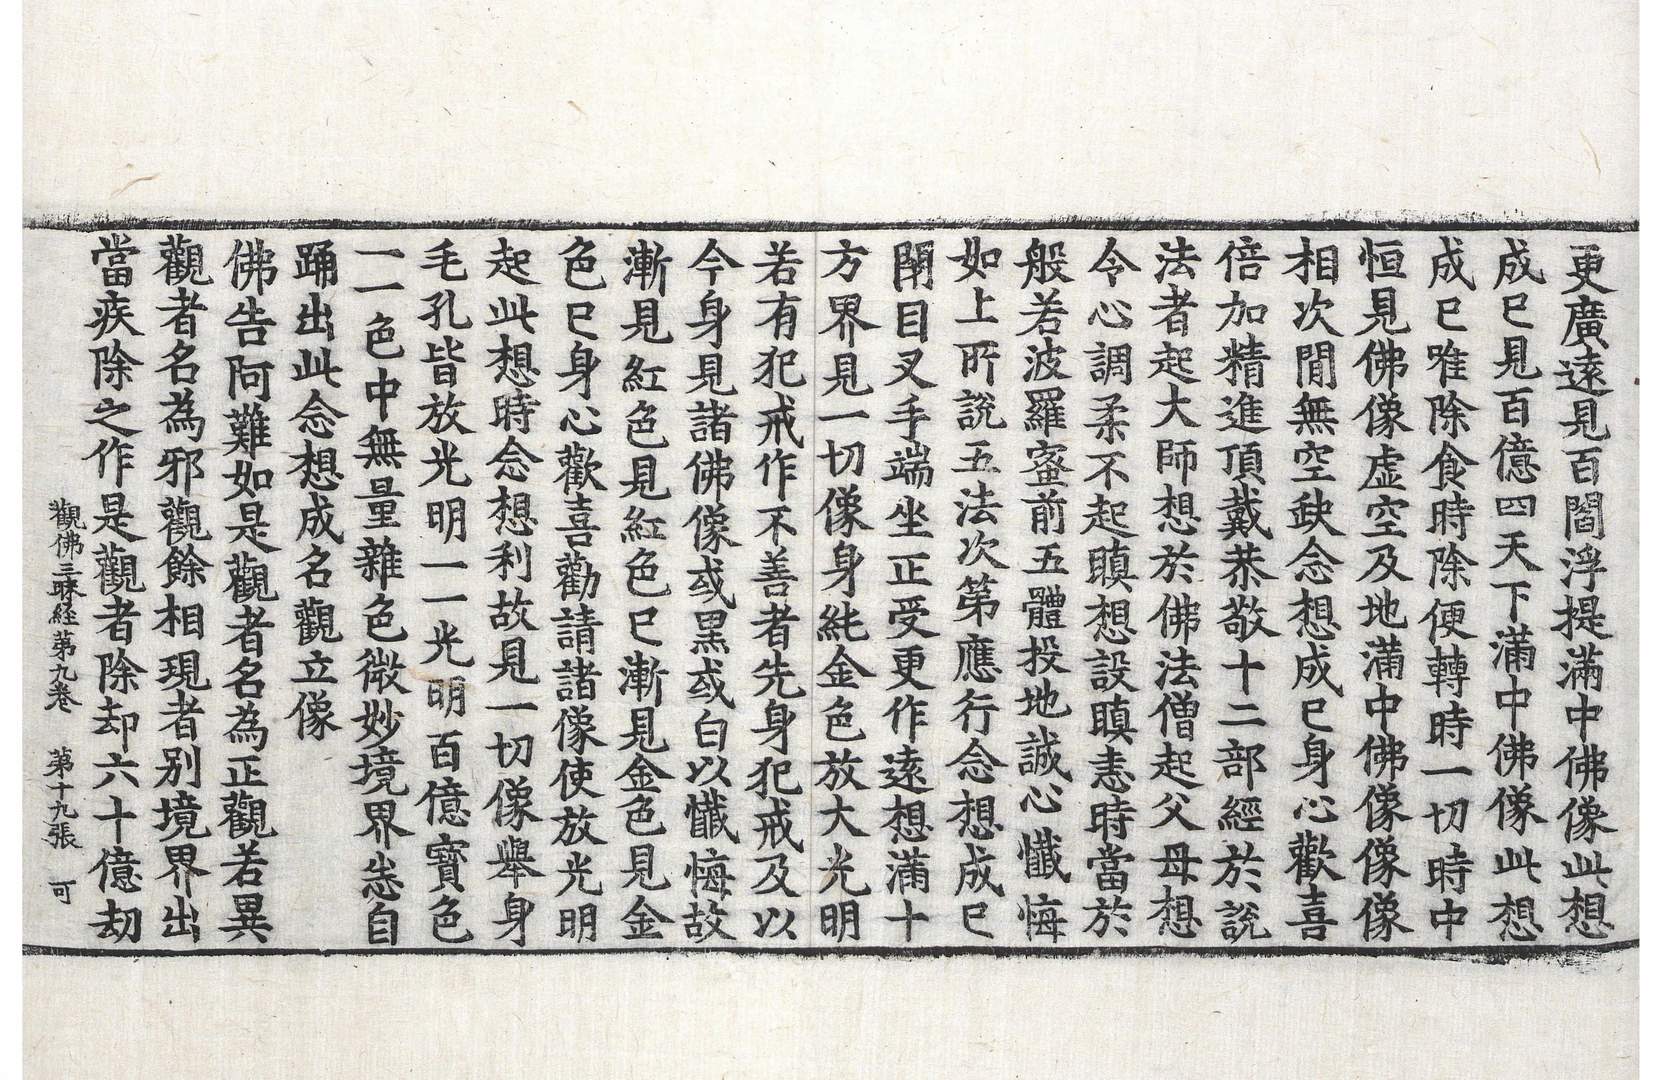 更廣遠見百閻浮提滿中佛像此想
成已見百億四天下滿中佛像此想
成已唯除食時除便轉時一切時中
恒見佛像虛空及地滿中佛像像像
相次閒無空缺念想成已身心歡喜
倍加精進頂戴恭敬十二部經於說
法者起大師想於佛法僧起父母想
令心調柔不起瞋想設瞋恚時當於
般若波羅蜜前五體投地誠心懺悔
如上所說五法次第應行念想成已
閉目叉手端坐正受更作遠想滿十
方界見一切像身純金色放大光明
若有犯戒作不善者先身犯戒及以
今身見諸佛像或黑或白以懺悔故
漸見紅色見紅色已漸見金色見金
色已身心歡喜勸請諸像使放光明
起此想時念想利故見一切像擧身
毛孔皆放光明一一光明百億寶色
一一色中無量雜色微妙境界悉自
踊出此念想成名觀立像
佛告阿難如是觀者名為正觀若異
觀者名為邪觀餘相現者別境界出
當疾除之作是觀者除却六十億劫
觀佛三昧經第九卷　第十九張　可